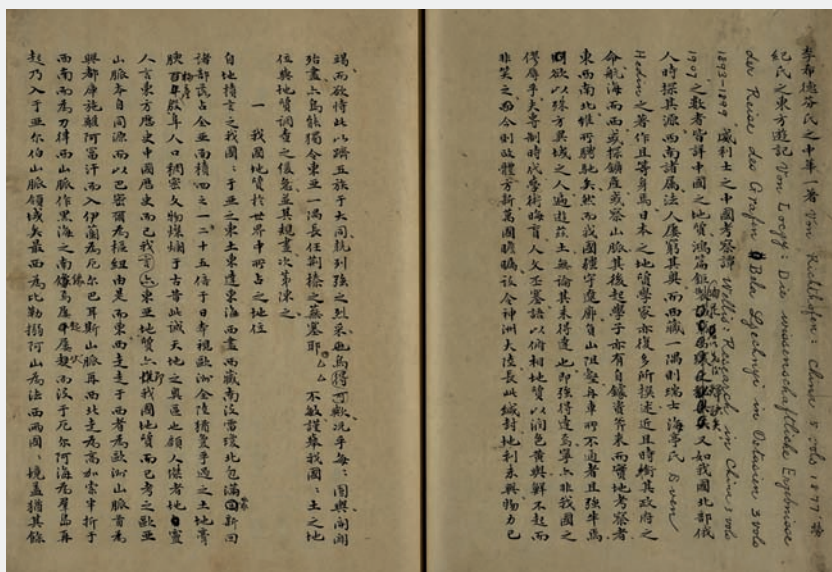 李希德芬氏之中華一著 Von Richthofen: China 5 vols 1877
紀氏之東方遊記 Von Loczy: Die wissenschaftliche Ergebnisse
der Reise des Grafen Bela Szechenyi in Ostasien 3 vols
1893-1899 威利士之中國考察譚 Willis: Research in China 3 vols
1907 之數者皆詳中國之地質鴻篇鉅製 又如我國北部俄
人時探其源西南諸属法人屢窮其奧而西藏一隅則瑞士海亭氏 Sven
Hedin 之著作且等身焉日本之地質學家亦復多所撰述近且時銜其政府之
命航海而西或探鑛產或察山脈其後起學子亦有自 資斧來而實地考察者
東西南北維所騁馳矣然而我國疆宇遼廓負山阻壑舟車所不通者且強半焉
欲以殊方異域之人遍遊茲土無論其未得達也即強得達焉寧亦非我國之
僇辱乎夫專制時代學術晦盲人文丕塞語以俯相地質以潤色黃輿鮮不起而
非笑之而今則政體方新萬國瞻矚設令神洲大陸長此緘封地利未興物力已
竭而欲恃此以躋五族于大同競列強之烈采也烏得可歟況乎每國與尚開
殆盡亦烏能獨令東亞一隅長任荆榛之蕪塞耶 不敏謹舉我國土之地
位與地質調查之緩急並其規畫次第陳之
一 我國地質於世界中所占之地位
自地積言之我國于亞之東土東達東海西盡西藏南沒雷瓊北包滿新回
諸部説占全亞面積四之一二十五倍于日本視歐洲全陸猶曼乎過之土地膏
腴物產殷阜人口稠密文物燦爛于古昔此誠天地之奧區也顧人傑者地靈
人言東方歷史中國歷史而已我言東亞地質亦惟我國地質而已考之歐亞
山脈本自同源而以巴密爾為樞紐由是而東西走走于西者為歐洲山脈首為
興都庫施離阿富汗而入伊蘭為厄尔巴耳斯山脈再西北走為高加索半折于
西南而為刀律西山脈作黑海之南緣烏度中屬起伏而沒于厄尔阿海為羣島再
起乃入于亞尔伯山脈領域矣最西為比勒搦阿山為法西兩國境蓋猶其餘